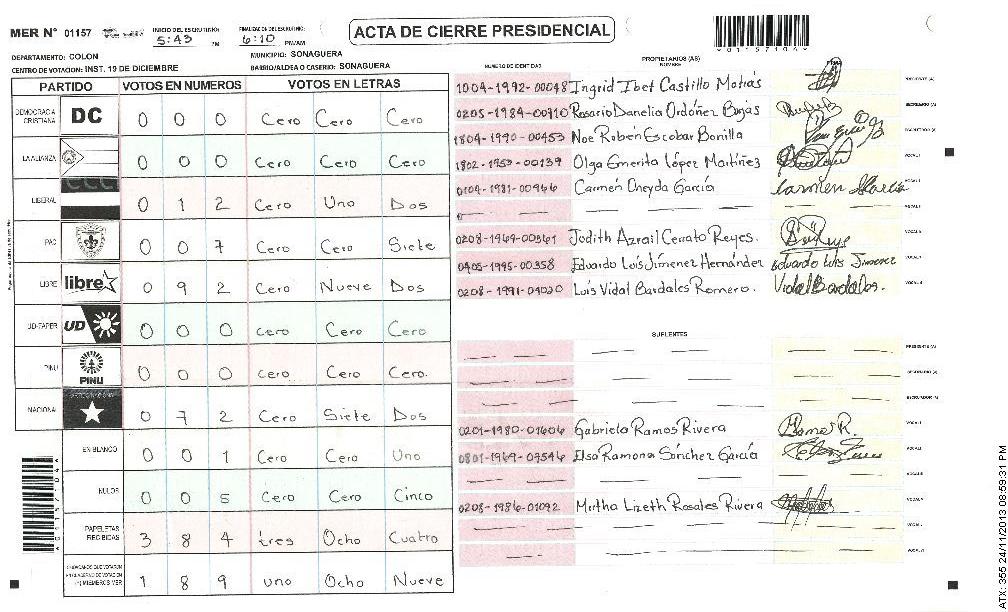 MER N° 01157
INICIO DEL ESCRUTINIO: 5:43 PM
FINALIZACION DEL ESCRUTINIO: 6:10 PM/AM
ACTA DE CIERRE PRESIDENCIAL
DEPARTAMENTO: COLON
MUNICIPIO: SONAGUERA
CENTRO DE VOTACION: INST. 19 DE DICIEMBRE
BARRIO/ALDEA O CASERIO: SONAGUERA
PARTIDO VOTOS EN NUMEROS VOTOS EN LETRAS
DEMOCRACIA CRISTIANA DC 0 0 0 Cero Cero Cero
LA ALIANZA 0 0 0 Cero Cero Cero
LIBERAL 0 1 2 Cero Uno Dos
PAC 0 0 7 Cero Cero Siete
LIBRE libre 0 9 2 Cero Nueve Dos
UD-FAPER UD 0 0 0 Cero Cero Cero
PINU PINU 0 0 0 Cero Cero Cero.
NACIONAL 0 7 2 Cero Siete Dos
EN BLANCO 0 0 1 Cero Cero Uno
NULOS 0 0 5 Cero Cero Cinco
PAPELETAS RECIBIDAS 3 8 4 tres Ocho Cuatro
CIUDADANOS QUE VOTARON 1 8 9 uno Ocho Nueve
NUMERO DE IDENTIDAD
PROPIETARIOS (AS)
NOMBRE
1004-1992-00048 Ingrid Ibet Castillo Matias PRESIDENTE (A)
0205-1984-00910 Rosario Danelia Ordóñez Bojas SECRETARIO (A)
1804-1990-00453 Noe Robén Escobar Bonilla ESCRUTADOR (A)
1802-1953-00139 Olga Emerita López Martínez
0104-1981-00966 Carmen Oneyda García Carmen
0208-1969-00361 Judith Azrail Cerrato Reyes.
0405-1995-00358 Eduardo Luis Jimenez Hernández Eduardo Luis Jimenez
0208-1991-01020 Luis Vidal Bardales Romero. Vidal Bardales.
SUPLENTES
PRESIDENTE (A)
SECRETARIO (A)
ESCRUTADOR (A)
0201-1980-01606 Gabriela Ramos Rivera Ramos R.
0801-1969-07546 Elsa Ramona Sánchez García
0208-1986-01092 Mirtha Lizeth Rosales Rivera
ATX: 355 24/11/2013 08:59:31 PM